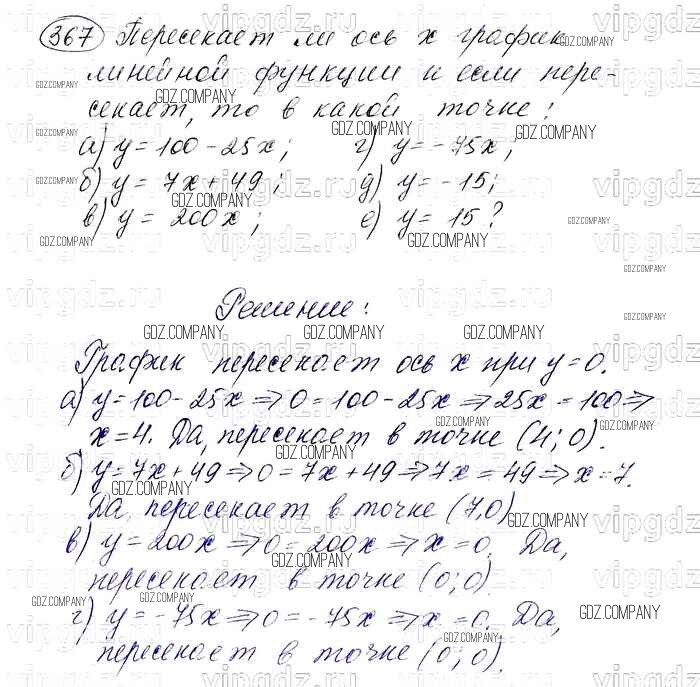 367 Пересекает ли ось x график
линейной функции и если пере-
секает, то в какой точке:
а) y = 100 - 25x; г) y = -75x;
б) y = 7x + 49; д) y = -15;
в) y = 200x; е) y = 15?
Решение:
График пересекает ось x при y = 0.
а) y = 100 - 25x ⇒ 0 = 100 - 25x ⇒ 25x = 100 ⇒
x = 4. Да, пересекает в точке (4; 0).
б) y = 7x + 49 ⇒ 0 = 7x + 49 ⇒ 7x = 49 ⇒ x = 7.
Да, пересекает в точке (7,0)
в) y = 200x ⇒ 0 = 200x ⇒ x = 0. Да,
пересекает в точке (0; 0).
г) y = -75x ⇒ 0 = -75x ⇒ x = 0. Да,
пересекает в точке (0; 0).
GDZ.COMPANY
vipgdz.ru